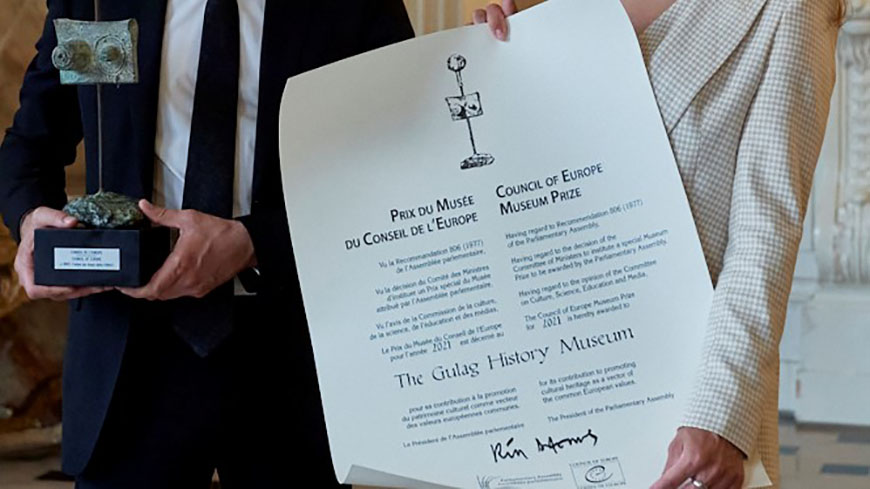 PRIX DU MUSÉE
DU CONSEIL DE L'EUROPE
Vu la Recommandation 806 (1977)
de l'Assemblée parlementaire,
Vu la décision du Comité des Ministres
d'instituer un Prix spécial du Musée
attribué par l'Assemblée parlementaire,
Vu l'avis de la Commission de la culture,
de la science, de l'éducation et des médias,
Le Prix du Musée du Conseil de l'Europe
pour l'année 2021 est décerné au
COUNCIL OF EUROPE
MUSEUM PRIZE
Having regard to Recommendation 806 (1977)
of the Parliamentary Assembly,
Having regard to the decision of the
Committee of Ministers to institute a special Museum
Prize to be awarded by the Parliamentary Assembly,
Having regard to the opinion of the Committee
on Culture, Science, Education and Media,
The Council of Europe Museum Prize
for 2021 is hereby awarded to
The Gulag History Museum
pour sa contribution à la promotion
du patrimoine culturel comme vecteur
des valeurs européennes communes.
Le Président de l'Assemblée parlementaire
for its contribution to promoting
cultural heritage as a vector of
the common European values.
The President of the Parliamentary Assembly
Parliamentary Assembly
Assemblée parlementaire
COUNCIL OF EUROPE
CONSEIL DE L'EUROPE